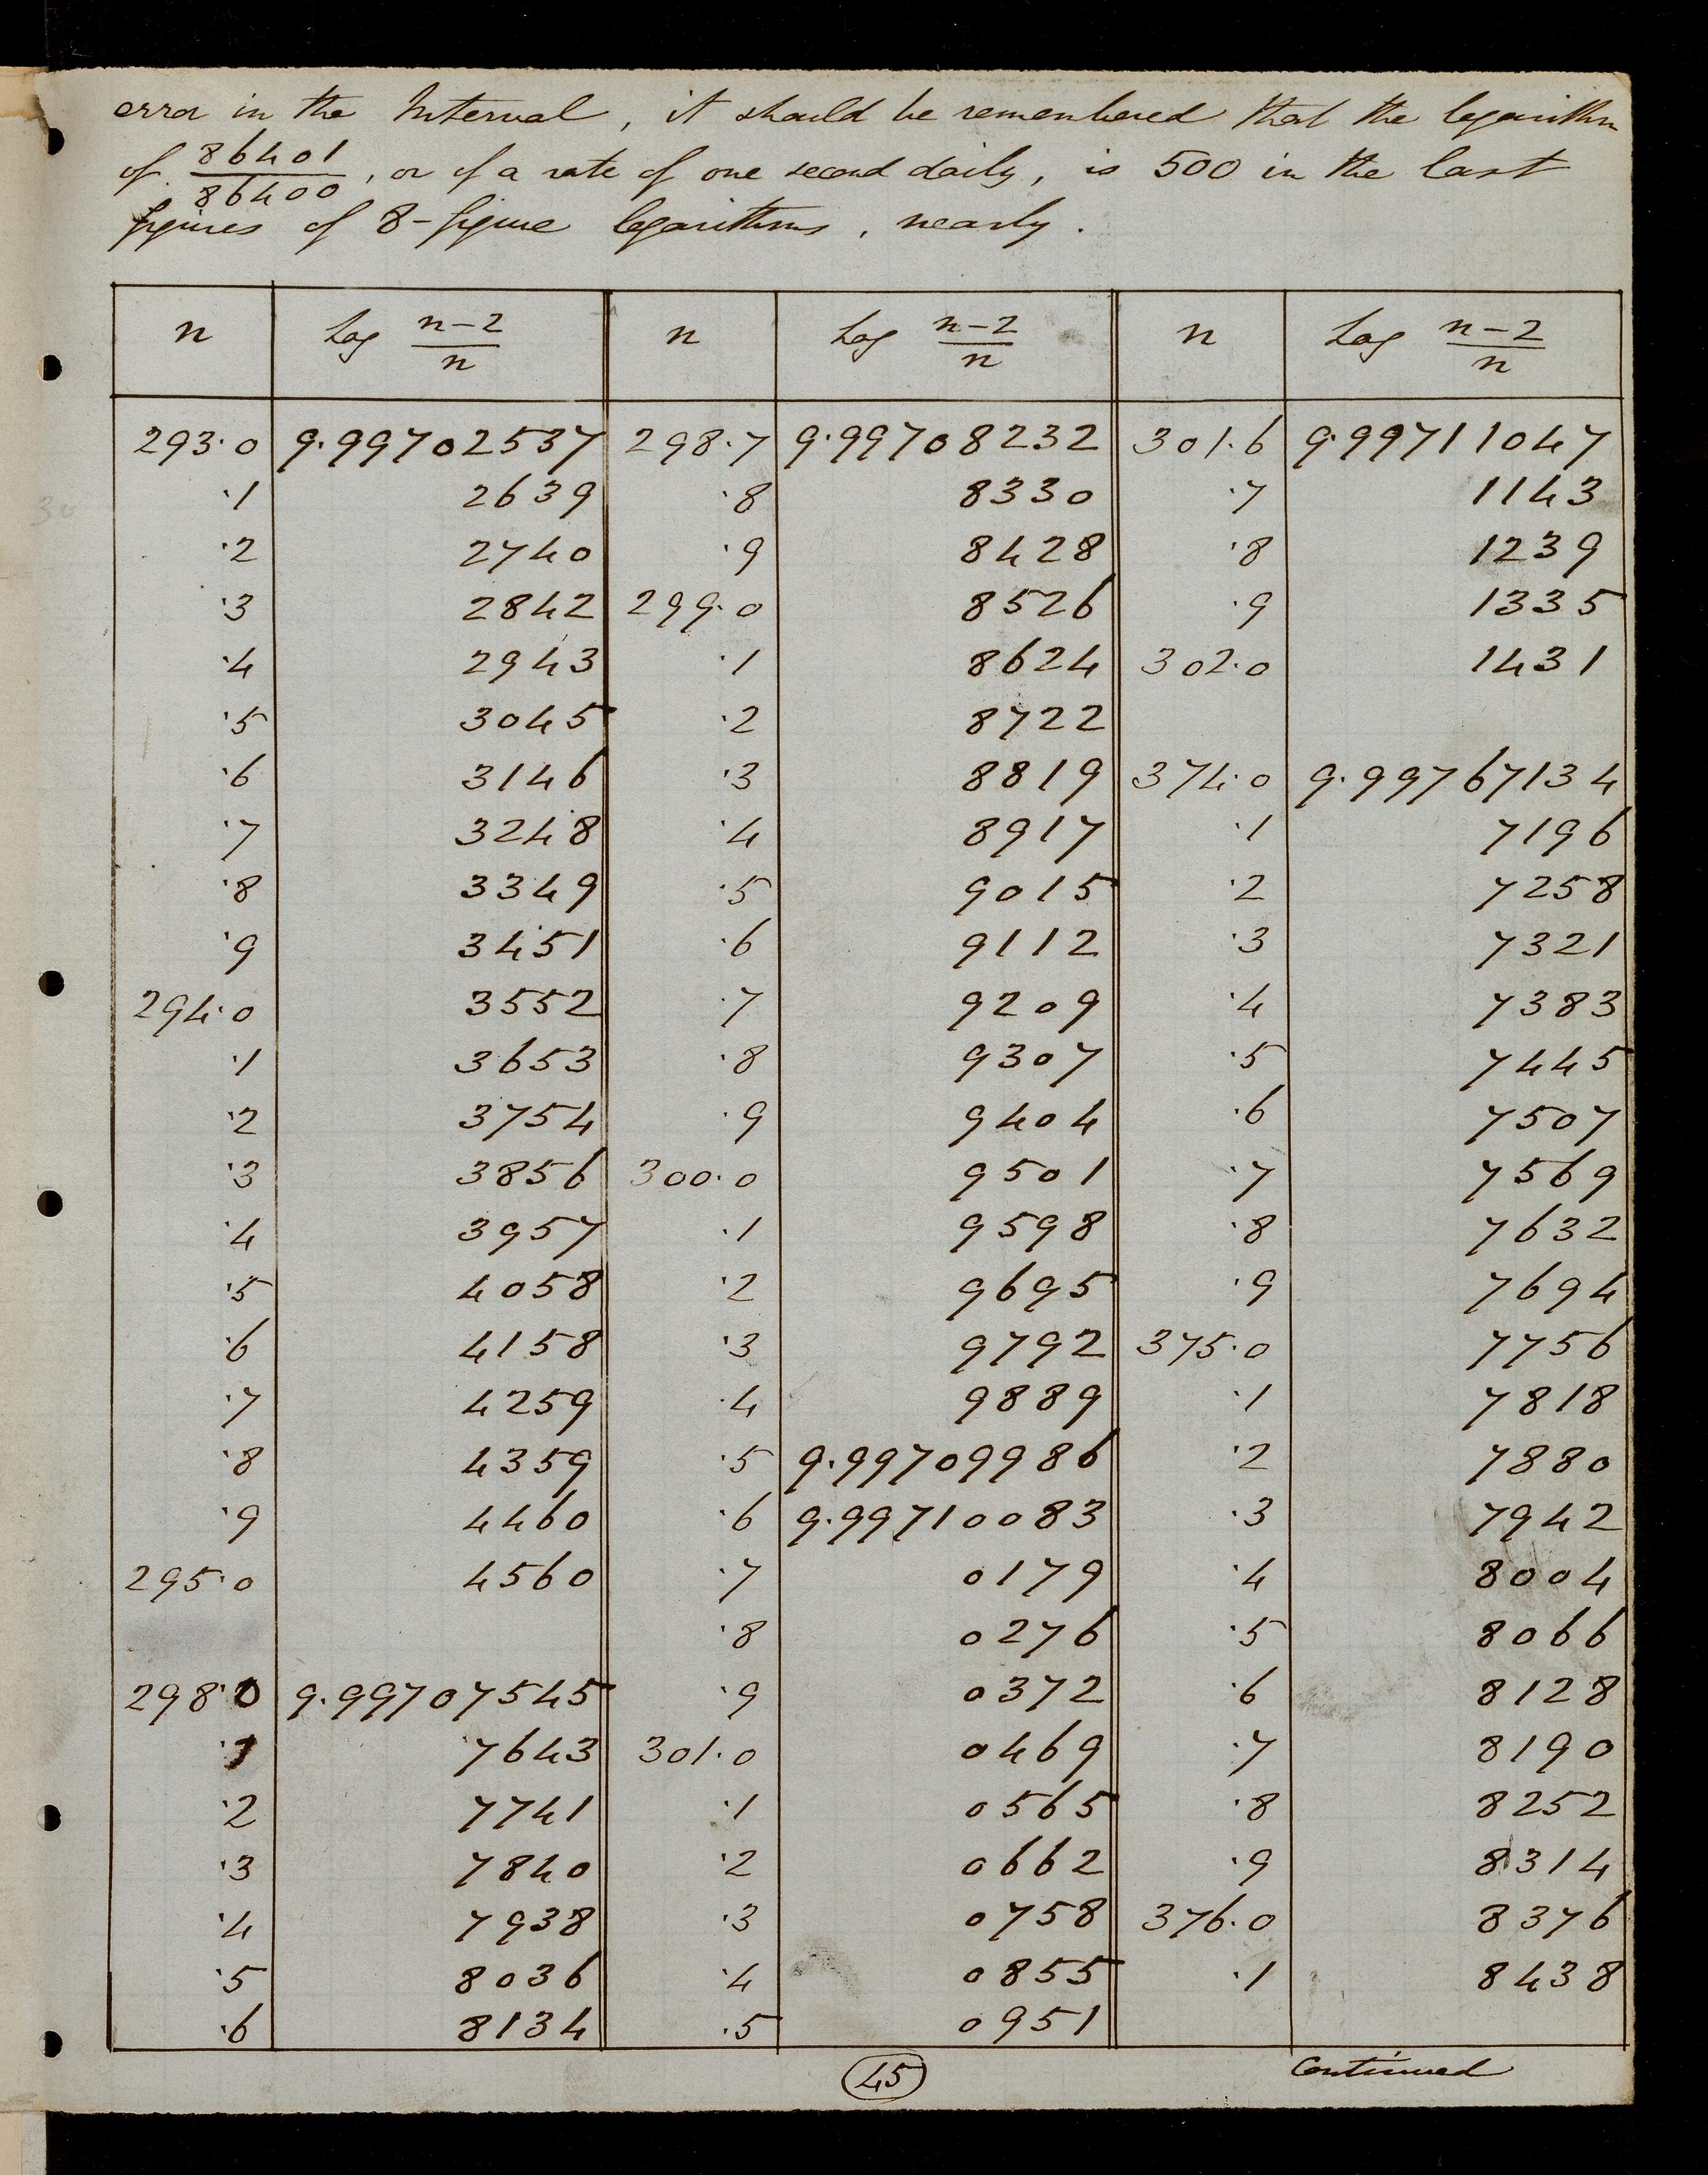 error in the Interval, it should be remembered that the logarithm
of 86401/86400, or of a rate of one second daily, is 500 in the last
figures of 8-figure logarithms, nearly.
n Log n-2/n n Log n-2/n n Log n-2/n
293.0 9.99702537 298.7 9.99708232 301.6 9.99711047
.1 2639 .8 8330 .7 1143
.2 2740 .9 8428 .8 1239
.3 2842 299.0 8526 .9 1335
.4 2943 .1 8624 302.0 1431
.5 3045 .2 8722
.6 3146 .3 8819 374.0 9.99767134
.7 3248 .4 8917 .1 7196
.8 3349 .5 9015 .2 7258
.9 3451 .6 9112 .3 7321
294.0 3552 .7 9209 .4 7383
.1 3653 .8 9307 .5 7445
.2 3754 .9 9404 .6 7507
.3 3856 300.0 9501 .7 7569
.4 3957 .1 9598 .8 7632
.5 4058 .2 9695 .9 7694
.6 4158 .3 9792 375.0 7756
.7 4259 .4 9889 .1 7818
.8 4359 .5 9.99709986 .2 7880
.9 4460 .6 9.99710083 .3 7942
295.0 4560 .7 0179 .4 8004
.8 0276 .5 8066
298.0 9.99707545 .9 0372 .6 8128
.1 7643 301.0 0469 .7 8190
.2 7741 .1 0565 .8 8252
.3 7840 .2 0662 .9 8314
.4 7938 .3 0758 376.0 8376
.5 8036 .4 0855 .1 8438
.6 8134 .5 0951
45 Continued